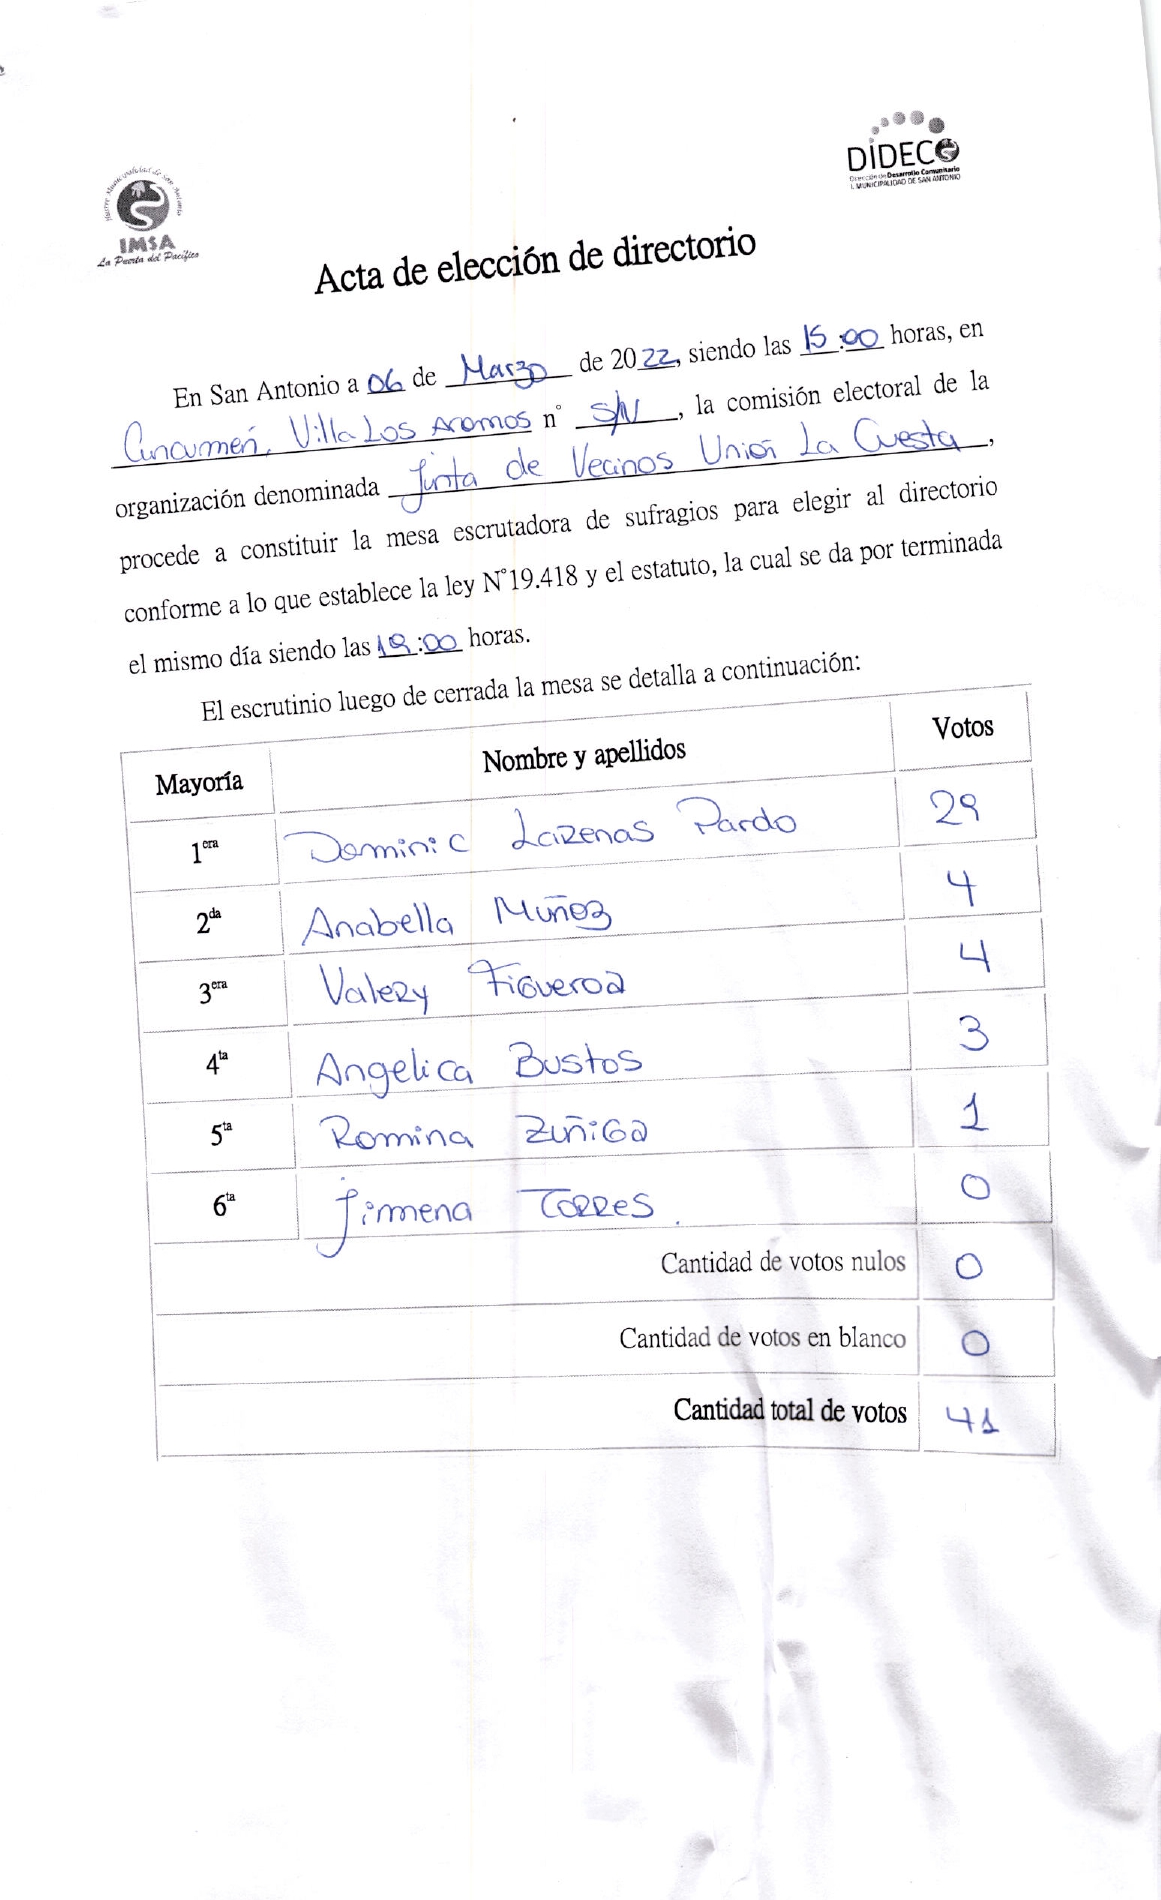 Ilustre Municipalidad de San Antonio
IMSA
La Puerta del Pacífico
DIDECO
Dirección de Desarrollo Comunitario
I. MUNICIPALIDAD DE SAN ANTONIO
Acta de elección de directorio
En San Antonio a 06 de Marzo de 2022, siendo las 15:00 horas, en
Cuncumén, Villa Los Aromos n° S/N, la comisión electoral de la
organización denominada Junta de Vecinos Unión La Cuesta,
procede a constituir la mesa escrutadora de sufragios para elegir al directorio
conforme a lo que establece la ley N°19.418 y el estatuto, la cual se da por terminada
el mismo día siendo las :00 horas.
El escrutinio luego de cerrada la mesa se detalla a continuación:
Mayoría Nombre y apellidos Votos
1era Dominic Pardo 29
2da Anabella Muñoz 4
3era Valery Figueroa 4
4ta Angelica Bustos 3
5ta Romina Zuñiga 1
6ta Jimena Torres. 0
Cantidad de votos nulos 0
Cantidad de votos en blanco 0
Cantidad total de votos 41